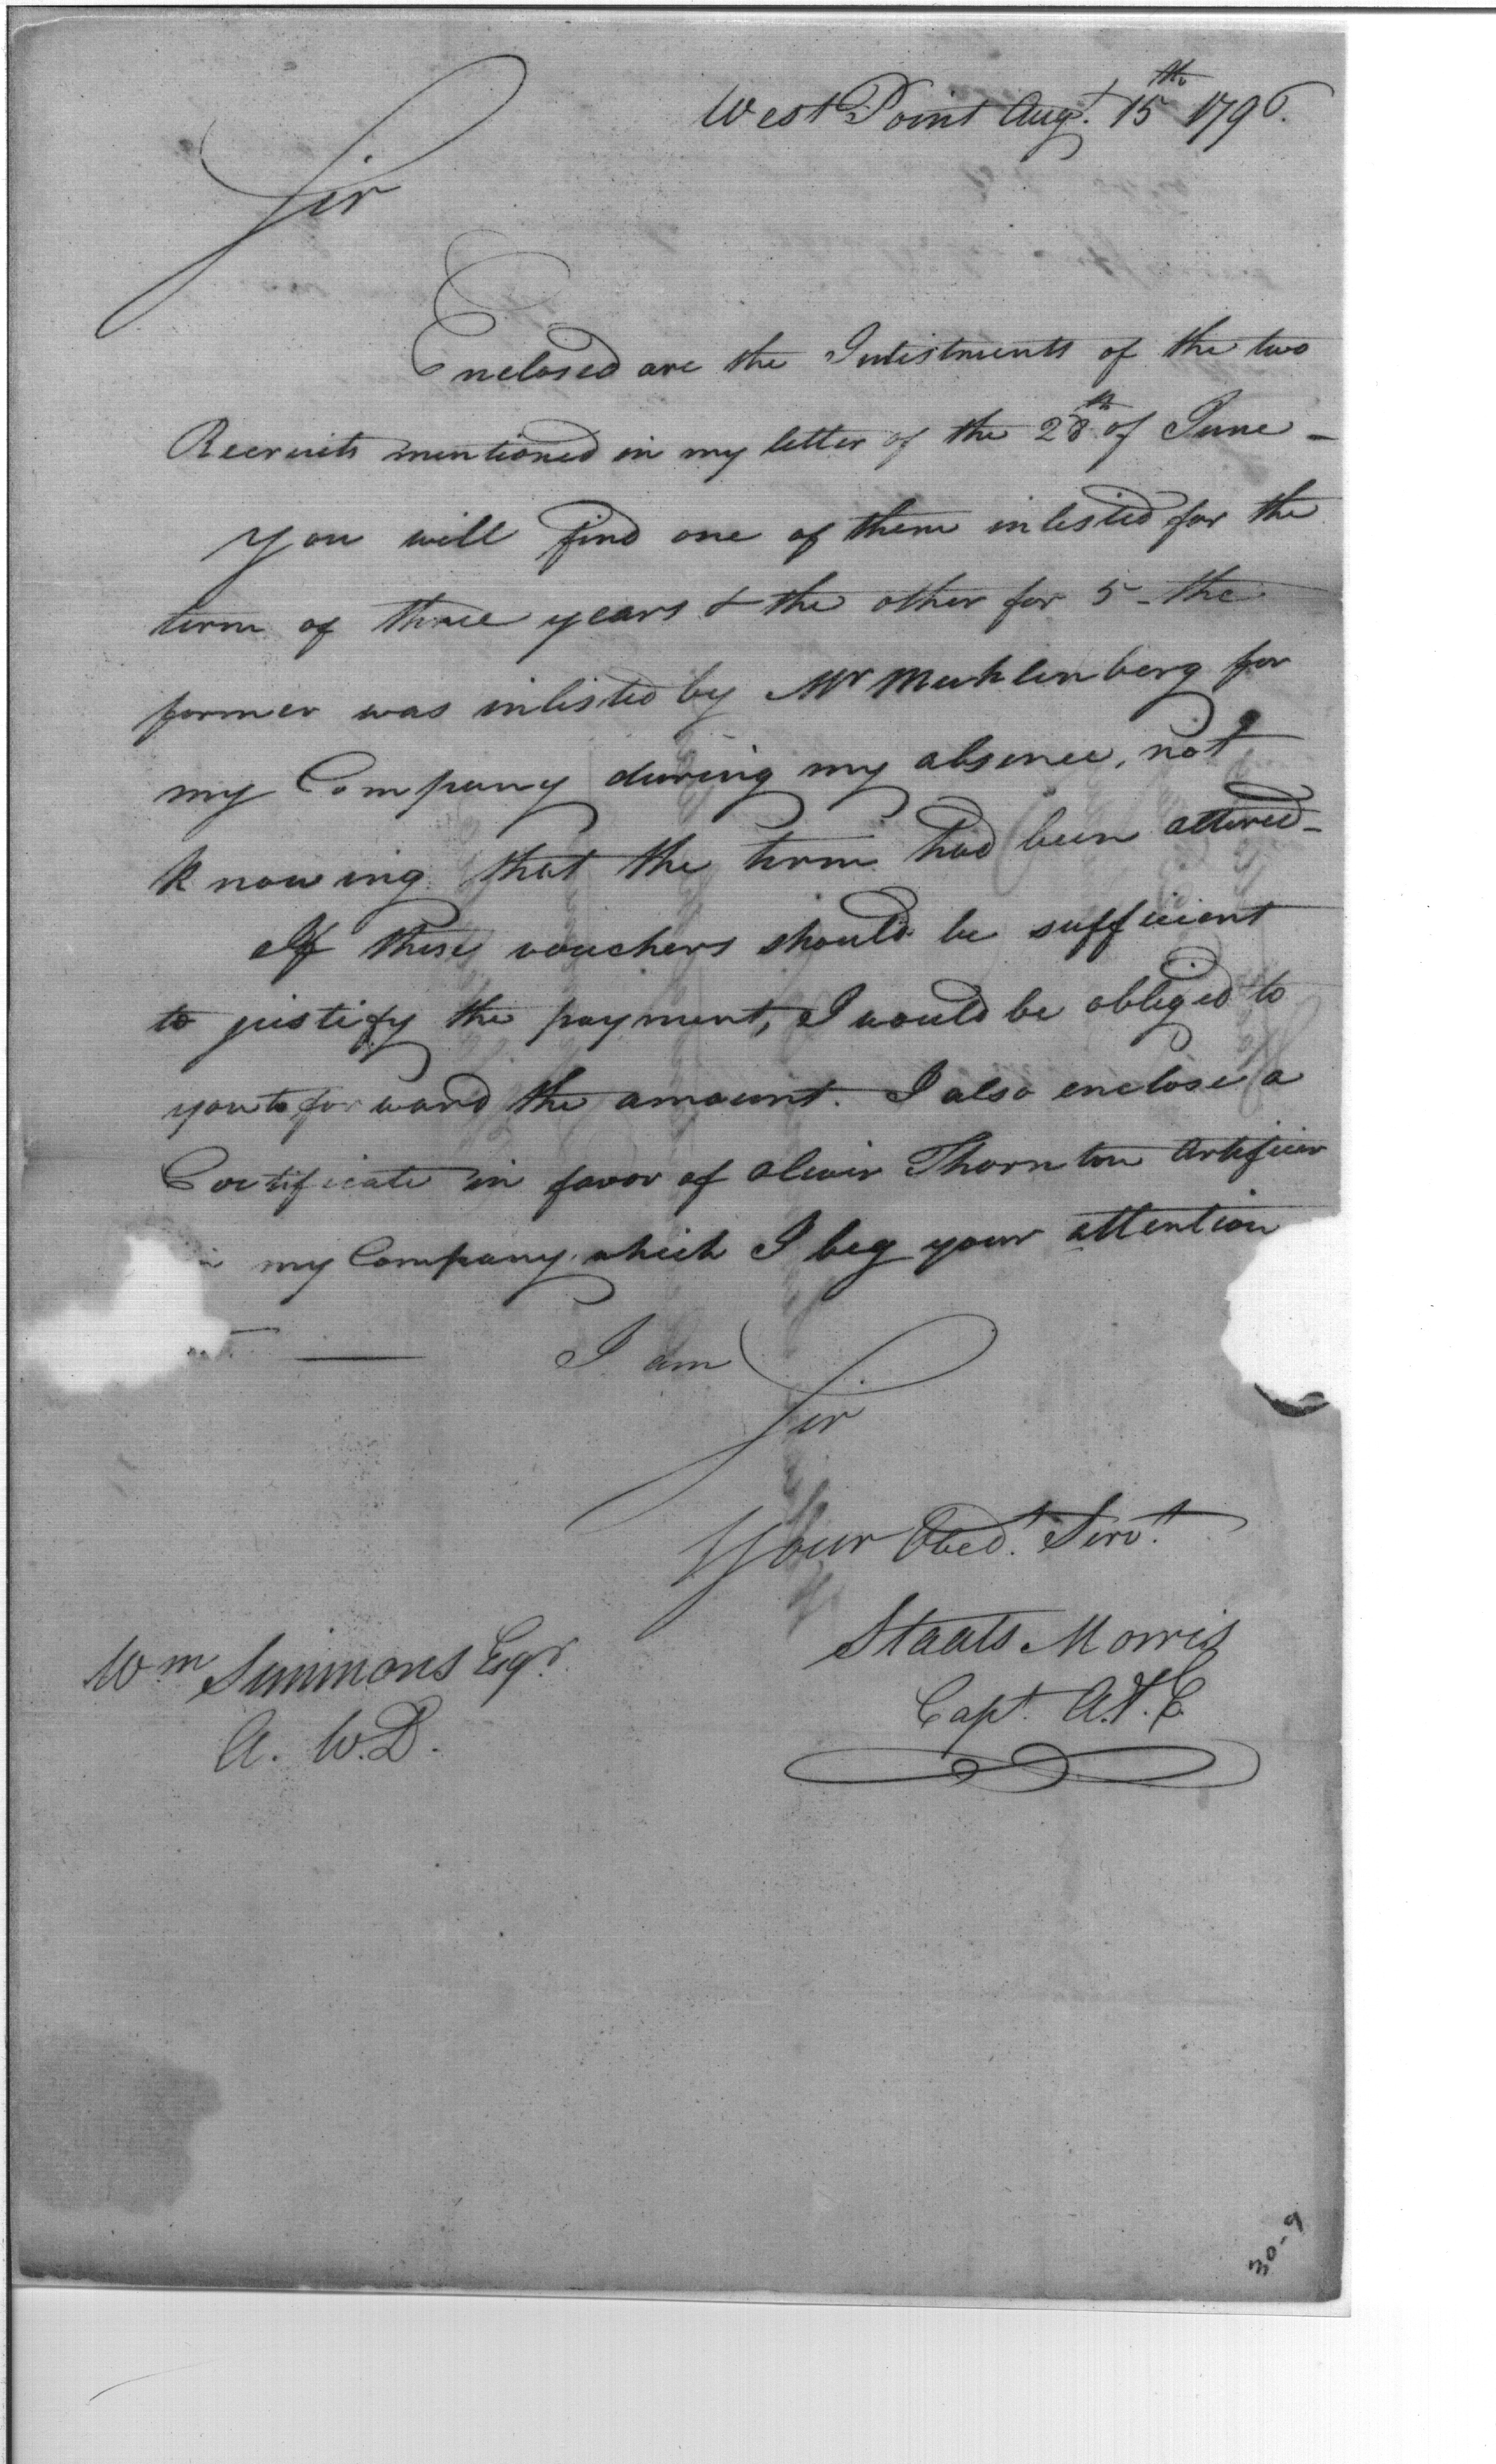 West Point Augt. 15th 1796.
Sir
Enclosed are the Inlistments of the two
Recruits mentioned in my letter of the 28th of June –
you will find one of them inlisted for the
term of three years & the other for 5 – the
former was inlisted by Mr Muhlenberg for
my Company during my absence, not
knowing that the term had been altered –
If these vouchers should be sufficient
to justify the payment, I would be obliged to
you to forward the amount. I also enclose a
Certificate in favor of Oliver Thornton Artificer
my Company which I beg your attention
I am
Sir
Your Obedt. Servt.
Staats Morris
Capt. A. & E.
Wm Simmons Esqr.
A. W. D.
30-9